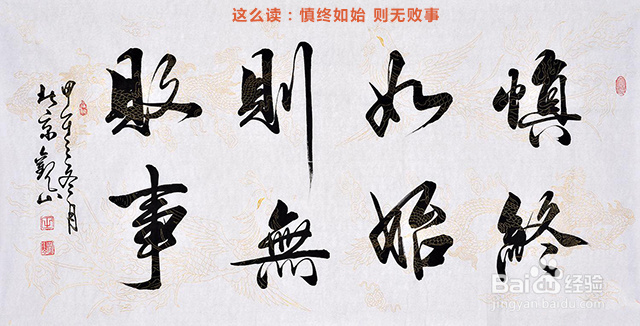 这么读:慎终如始 则无败事
慎終
如始
則無
敗事
北京
Bai 百度 经验
jingyan.baidu.com